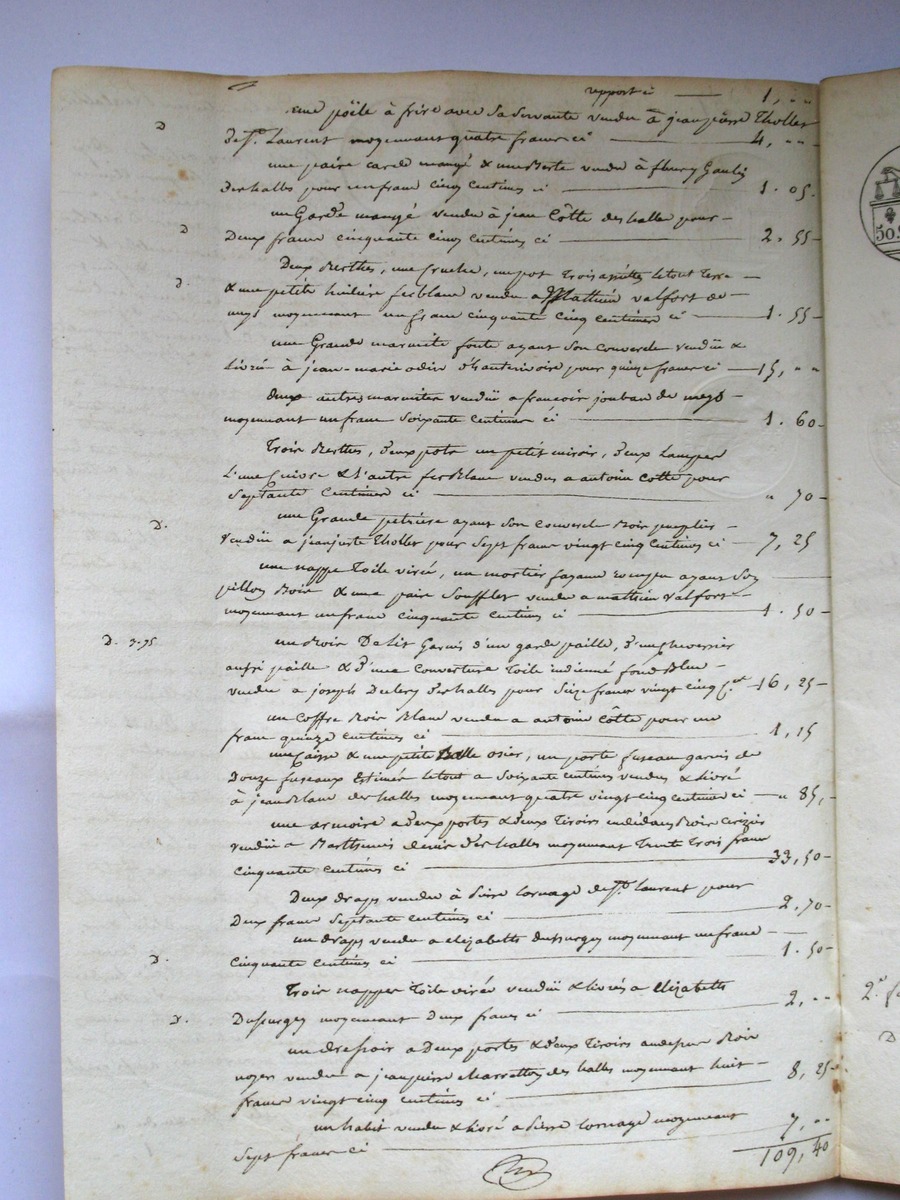 report ci — 1, ""
une poële à frire avec sa servante vendu à jean pierre Thollet
D
de St. Laurent moyennant quatre francs ci — 4, ""
une paire carde mangé & une Berte vendu à fleury
des halles pour un franc cinq centimes ci — 1. 05.
un Garde mangé vendu à jean Côtte des halles pour —
D
Deux francs cinquante cinq centimes ci — 2. 55 —
Deux Berthes, une cruche, un pot Trois assiettes le tout terre —
D.
& une petite huilière ferblanc vendu a Mathieu valfort de —
meys moyennant un franc cinquante cinq centimes ci — 1. 55 —
une Grande marmite fonte ayant son couvercle vendüe &
Livrée à jean-marie odin d'hauterivoire pour quinze francs ci — 15, ""
deux autres marmites vendüe a francois jouban de meys —
moyennant un franc soixante centimes ci — 1. 60 —
Trois Berthes, deux pots un petit miroir, deux Lampes
L'une Cuivre & L'autre ferBlanc vendus a antoine Cotte pour
Septante Centimes ci — " 70 —
une Grande petrière ayant son couvercle Bois peuplier —
D.
vendüe a jean juste Thollet pour Sept francs vingt cinq Centimes ci — 7, 25
une nappe Toile virée, un mortier ayant son
pillon Bois & une paire Soufflet vendu a mathieu valfort —
moyennant un franc cinquante centimes ci — 1. 50 —
D. 3.75
un Bois De Lit Garnis d'un garde paille, d'un
aussi paille & d'une couverture Toile indienne fond Bleu —
vendu a joseph des halles pour Seize francs vingt cinq C. — 16, 25 —
un coffre Bois Blanc vendu a antoine Côtte pour un
franc quinze centimes ci — 1, 15
une Caisse & une petite osier, un porte fuseau garnis de
Douze fuseaux Estimer le tout a soixante centimes vendus & livré
à jean Blanc des halles moyennant quatre vingt cinq centimes ci — " 85, —
une armoire a deux portes & deux Tiroirs Bois Cerizier
vendüe a Barthelemis des halles moyennant Trente Trois francs
cinquante centimes ci — 33, 50 —
Deux draps vendu à Pierre Cornage de St. Laurent pour
Deux francs Septante centimes ci — 2. 70 —
un draps vendu a elizabette Dussurgey moyennant un franc —
D.
cinquante centimes ci — 1. 50 —
Trois nappes Toile virée vendüe & livrés a elizabette
D.
Dussurgey moyennant Deux francs ci — 2, ""
un dressoir a Deux portes & deux Tiroirs au dessus Bois
noyer vendu a jean pierre charretton des halles moyennant huit —
francs vingt cinq centimes ci — 8, 25
un habit vendu & livré a Pierre Cornage moyennant
Sept francs ci — 7, ""
109, 40
50.
2.
D